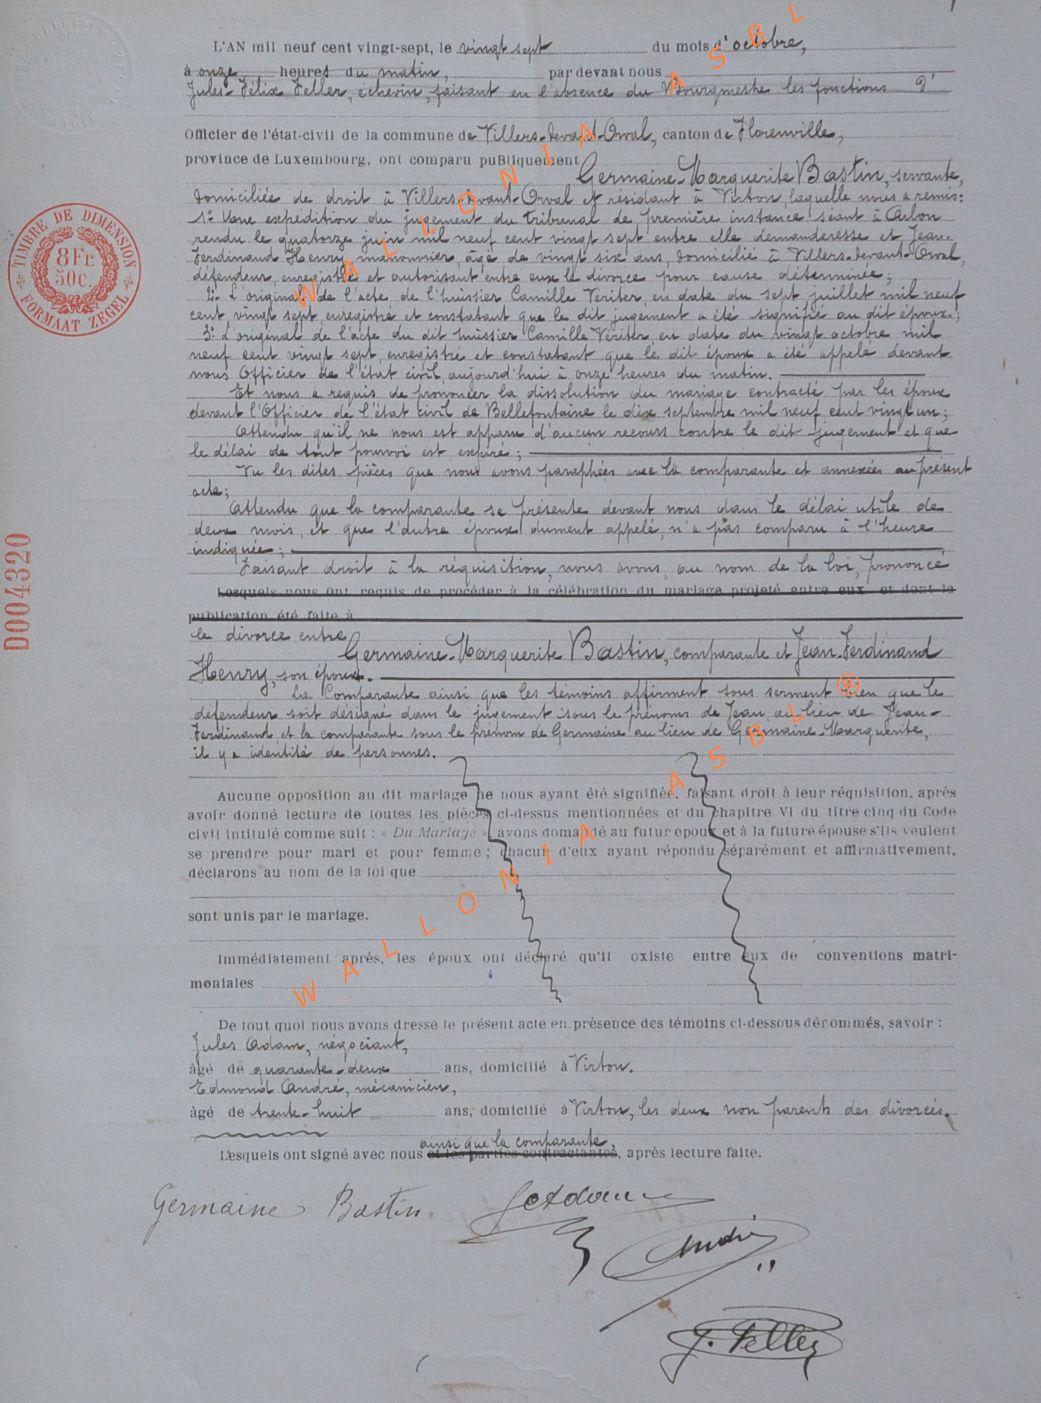 L'AN mil neuf cent vingt-sept, le vingt sept du mois d'octobre,
à onze heures du matin, par devant nous
Jules-Félix Feller, échevin, faisant en l'absence du Bourgmestre les fonctions d'
Officier de l'état-civil de la commune de Villers-devant-Orval, canton de Florenville,
province de Luxembourg, ont comparu publiquement Germaine-Marguerite Bastin, servante,
domiciliée de droit à Villers-devant-Orval et résidant à Virton, laquelle nous a remis:
1° Une expédition du jugement du tribunal de première instance séant à Arlon
rendu le quatorze juin mil neuf cent vingt sept entre elle demanderesse et Jean-
Ferdinand Henry, manouvrier, âgé de vingt six ans, domicilié à Villers-devant-Orval,
défendeur, enregistré et autorisant entre eux le divorce pour cause déterminée;
2° L'original de l'acte de l'huissier Camille Vériter, en date du sept juillet mil neuf
cent vingt sept, enregistré et constatant que le dit jugement a été signifié au dit époux;
3° L'original de l'acte du dit huissier Camille Vériter, en date du vingt octobre mil
neuf cent vingt sept, enregistré et constatant que le dit époux a été appelé devant
nous Officier de l'état civil, aujourd'hui à onze heures du matin.
Et nous a requis de prononcer la dissolution du mariage contracté par les époux
devant l'Officier de l'état civil de Bellefontaine le dix septembre mil neuf cent vingt un;
Attendu qu'il ne nous est apparu d'aucun recours contre le dit jugement et que
le délai de tout pourvoi est expiré;
Vu les dites pièces que nous avons paraphées avec la comparante et annexées au présent
acte;
Attendu que la comparante se présente devant nous dans le délai utile de
deux mois, et que l'autre époux dument appelé, n'a pas comparu à l'heure
indiquée;
Faisant droit à la réquisition, nous avons, au nom de la loi, prononcé
Lesquels nous ont requis de procéder à la célébration du mariage projeté entre eux et dont la
publication été faite à
le divorce entre
Germaine-Marguerite Bastin, comparante et Jean-Ferdinand
Henry, son époux.
La Comparante ainsi que les témoins affirment sous serment bien que le
défendeur soit désigné dans le jugement sous le prénoms de Jean au lieu de Jean-
Ferdinand et la comparante sous le prénom de Germaine au lieu de Germaine-Marguerite,
il y a identité de personnes.
Aucune opposition au dit mariage ne nous ayant été signifiée, faisant droit à leur réquisition, après
avoir donné lecture de toutes les pièces ci-dessus mentionnées et du chapitre VI du titre cinq du Code
civil intitulé comme suit : « Du Mariage » avons demandé au futur époux et à la future épouse s'ils veulent
se prendre pour mari et pour femme ; chacun d'eux ayant répondu séparément et affirmativement,
déclarons au nom de la loi que
sont unis par le mariage.
Immédiatement après, les époux ont déclaré qu'il existe entre eux de conventions matri-
moniales
De tout quoi nous avons dressé le présent acte en présence des témoins ci-dessous dénommés, savoir :
Jules Adam, négociant,
âgé de quarante-deux ans, domicilié à Virton.
Edmond André, mécanicien,
âgé de trente-huit ans, domicilié à Virton, les deux non parents des divorcés.
ainsi que la comparante,
Lesquels ont signé avec nous et les parties contractantes, après lecture faite.
Germaine Bastin
André
J. Feller
TIMBRE DE DIMENSION
8 Fr.
50 C.
FORMAAT ZEGEL
D004320
WALLONIA ASBL
WALLONIA ASBL ®